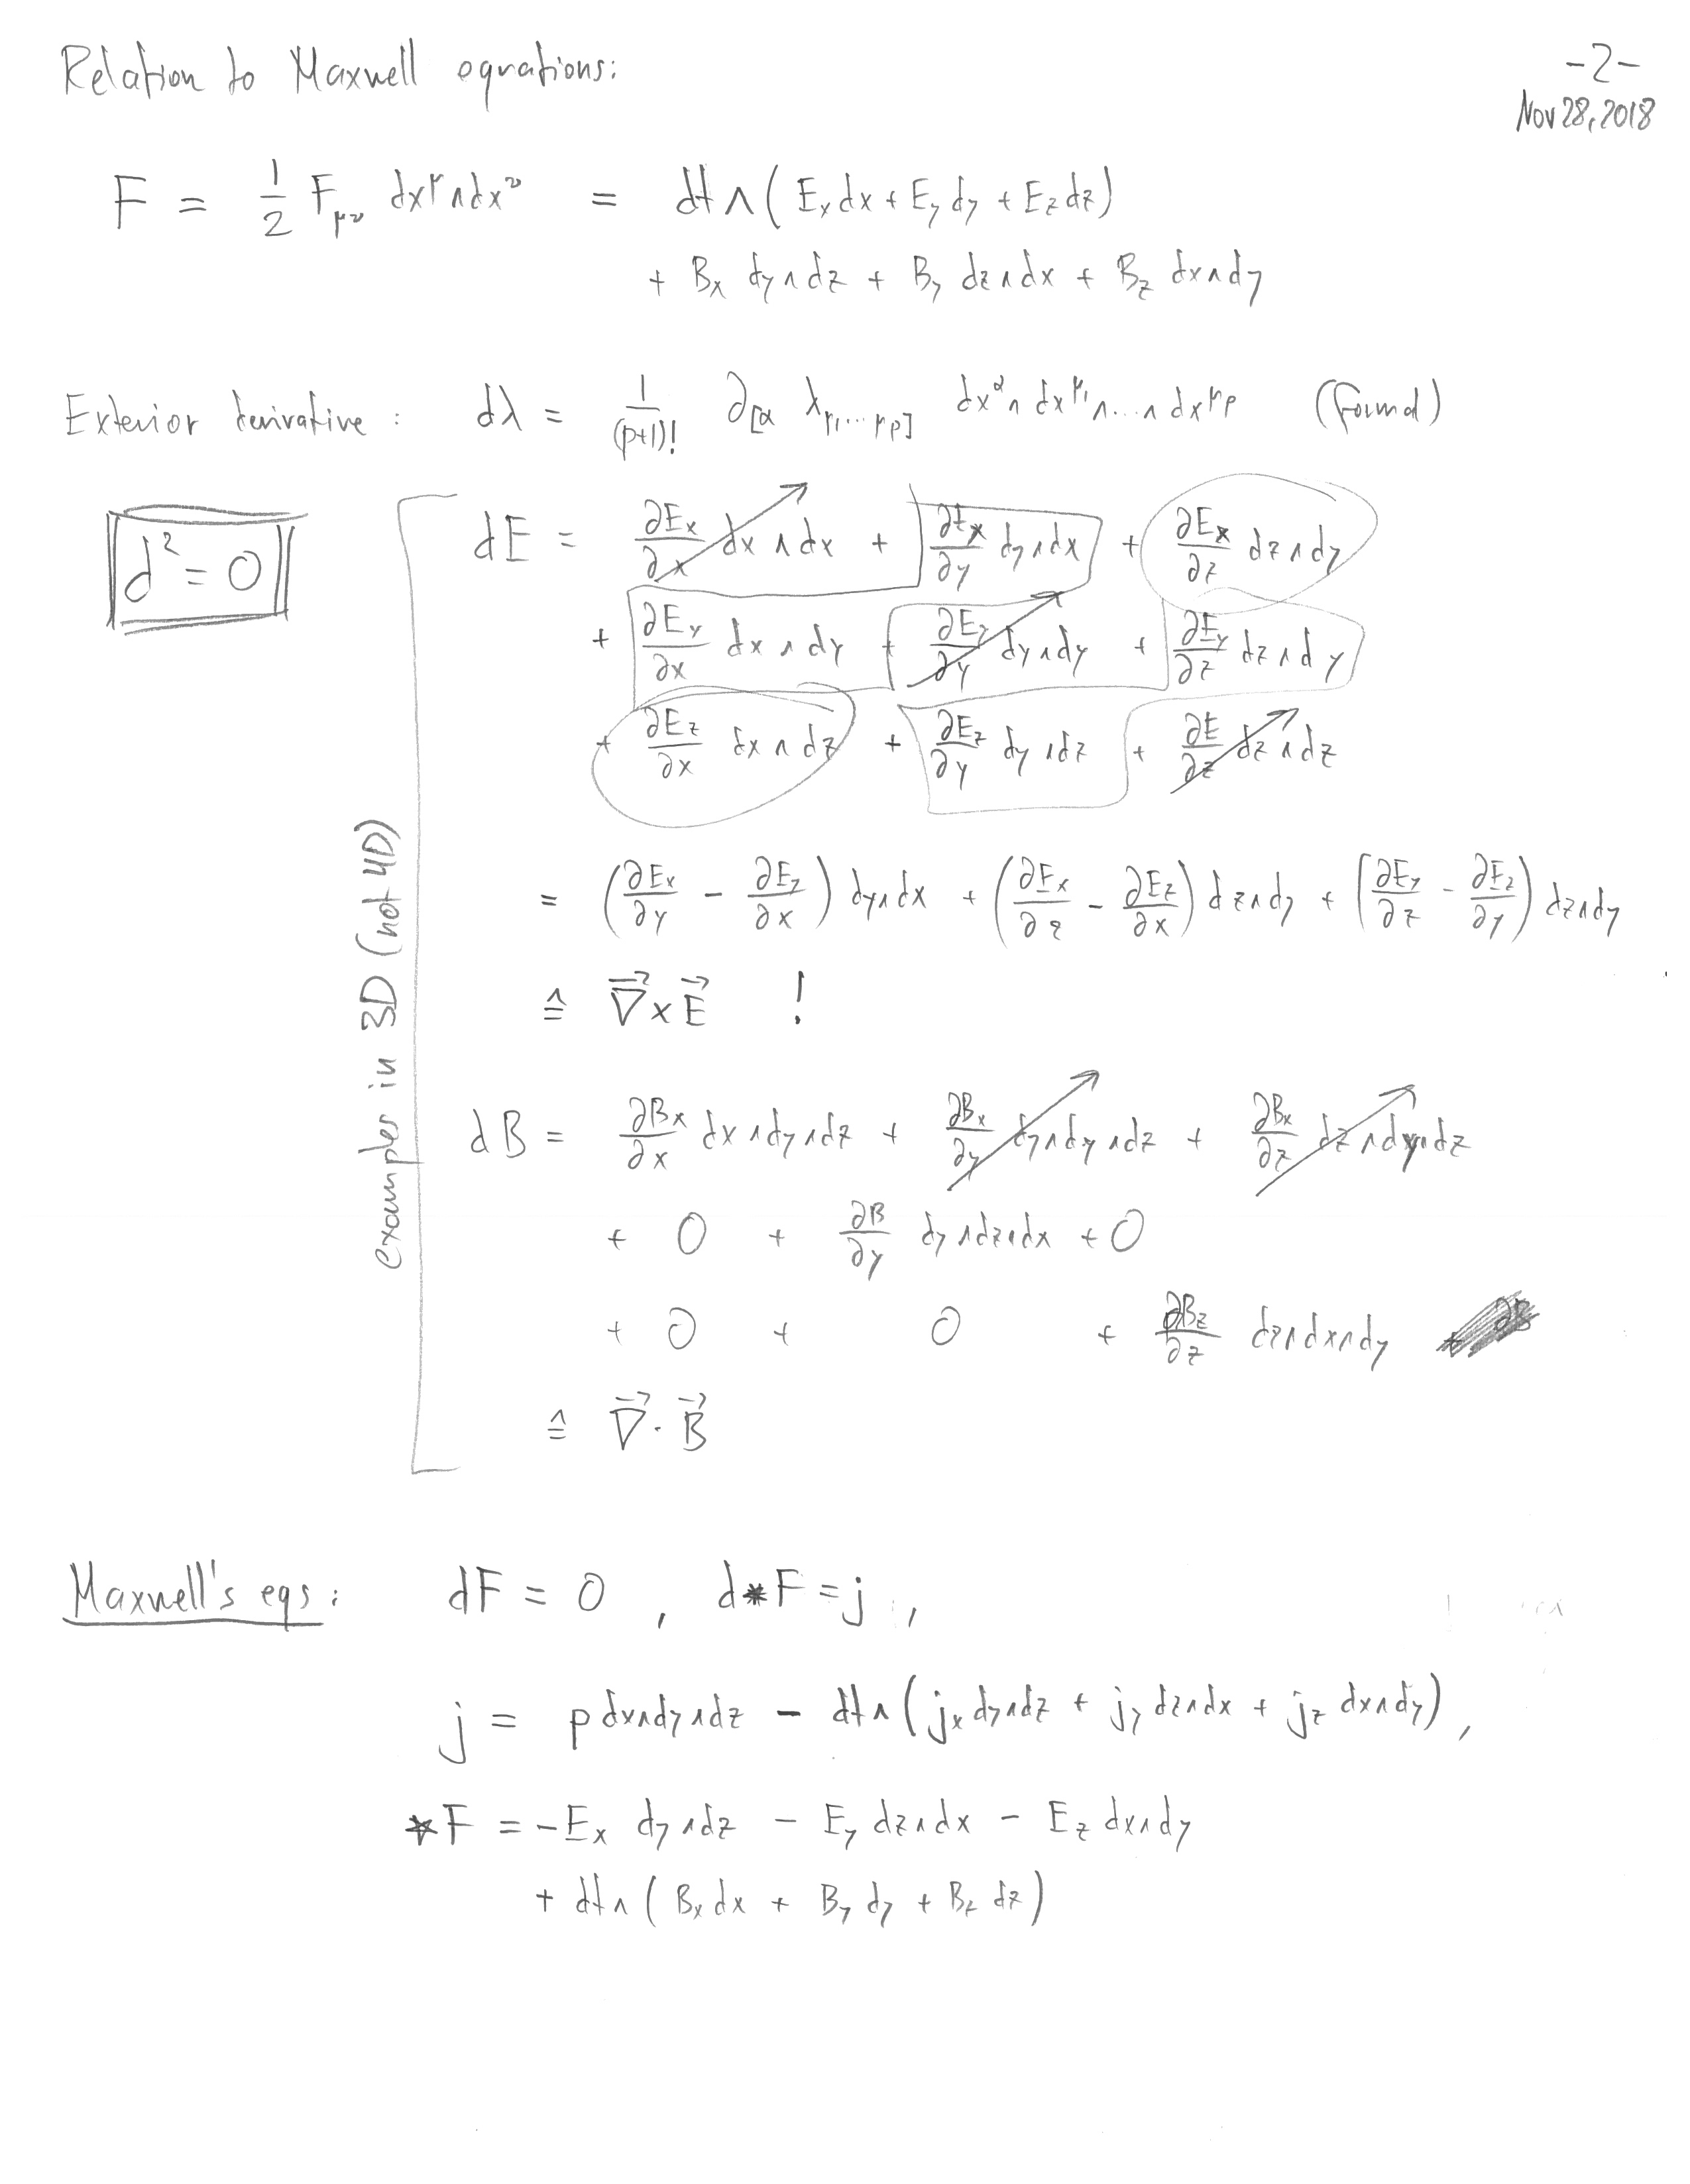 Relation to Maxwell equations:
-2-
Nov 28, 2018
F = 1/2 F_μν dx^μ ∧ dx^ν = dt ∧ (E_x dx + E_y dy + E_z dz)
+ B_x dy ∧ dz + B_y dz ∧ dx + B_z dx ∧ dy
Exterior derivative : dλ = 1/(p+1)! ∂_[α λ_μ1...μp] dx^α ∧ dx^μ1 ∧ ... ∧ dx^μp (formal)
d² = 0
examples in 3D (not 4D)
dE = ∂E_x/∂x dx ∧ dx + ∂E_x/∂y dy ∧ dx + ∂E_x/∂z dz ∧ dy
+ ∂E_y/∂x dx ∧ dy + ∂E_y/∂y dy ∧ dy + ∂E_y/∂z dz ∧ dy
+ ∂E_z/∂x dx ∧ dz + ∂E_z/∂y dy ∧ dz + ∂E/∂z dz ∧ dz
= (∂E_x/∂y - ∂E_y/∂x) dy ∧ dx + (∂E_x/∂z - ∂E_z/∂x) dz ∧ dy + (∂E_y/∂z - ∂E_z/∂y) dz ∧ dy
≙ ∇⃗ × E⃗ !
dB = ∂B_x/∂x dx ∧ dy ∧ dz + ∂B_x/∂y dy ∧ dy ∧ dz + ∂B_x/∂z dz ∧ dy ∧ dz
+ 0 + ∂B/∂y dy ∧ dz ∧ dx + 0
+ 0 + 0 + ∂B_z/∂z dz ∧ dx ∧ dy
≙ ∇⃗ · B⃗
Maxwell's eqs : dF = 0 , d*F = j ,
j = ρ dx ∧ dy ∧ dz - dt ∧ (j_x dy ∧ dz + j_y dz ∧ dx + j_z dx ∧ dy) ,
*F = -E_x dy ∧ dz - E_y dz ∧ dx - E_z dx ∧ dy
+ dt ∧ (B_x dx + B_y dy + B_z dz)